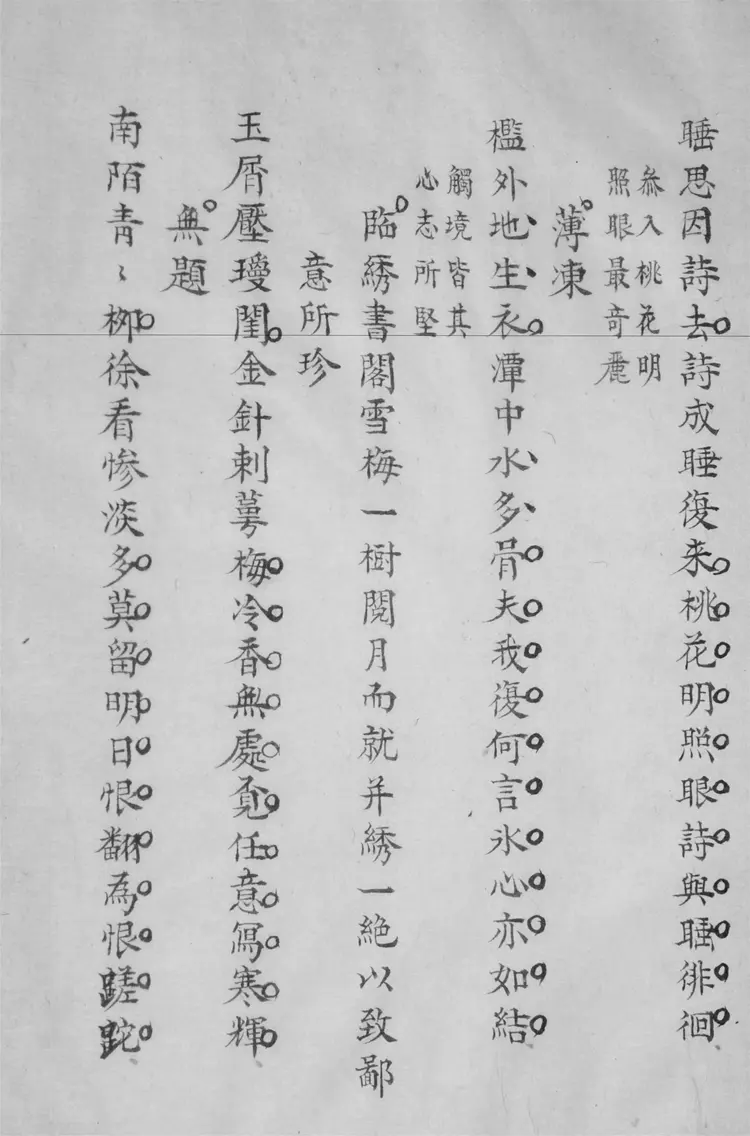 睡思因詩去詩成睡復来桃花明照眼詩與睡徘徊
叅入桃花明
照眼最奇麗
薄凍
檻外地生衣潭中水多骨夫我復何言氷心亦如結
觸境皆其
心志所堅
臨綉書閣雪梅一樹閱月而就并綉一絶以致鄙
意所珍
玉屑壓璦闺金針刺萼梅冷香無處覔任意冩寒輝
無題
南陌青〻栁徐看惨淡多莫留明日恨翻為恨蹉跎